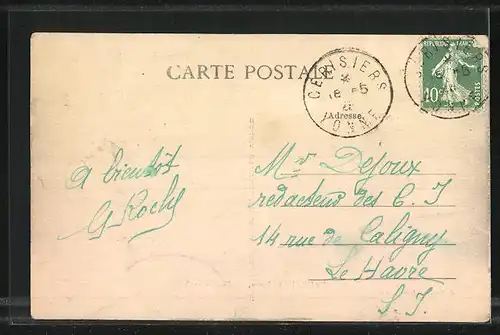 CARTE POSTALE
CERISIERS
18 -5
YONNE
Adresse
REPUBLIQUE FRANCAISE
10c
POSTES
A bientôt
G. Roche
Mr Dejoux
redacteur des C. I
14 rue de Caligny
Le Havre
S. I.